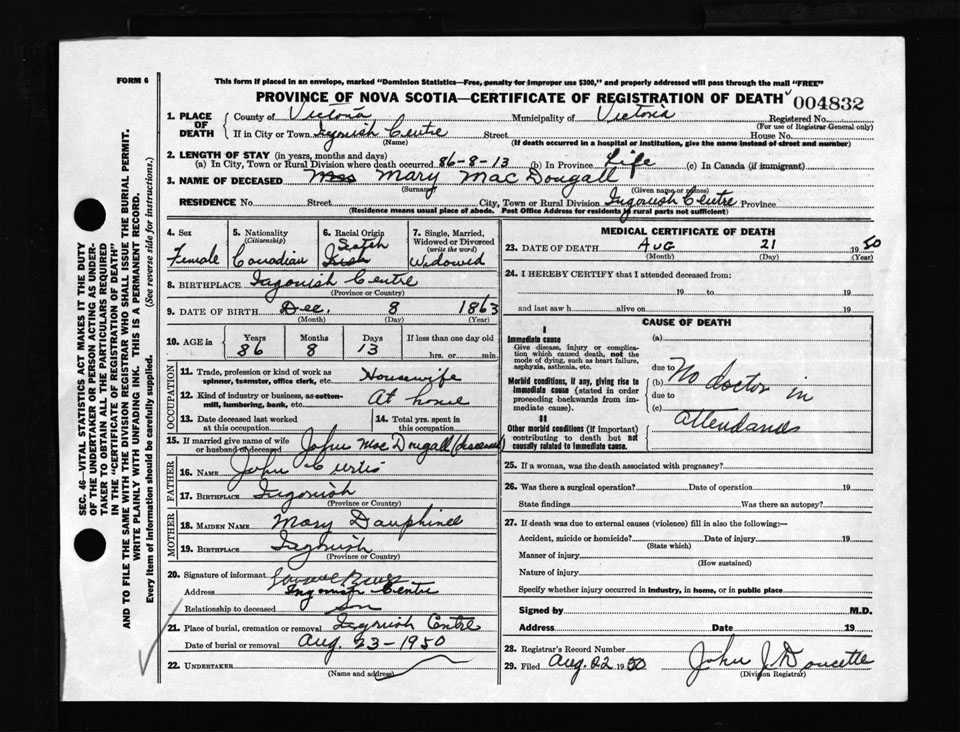 FORM 6
This form if placed in an envelope, marked "Dominion Statistics—Free, penalty for improper use $300," and properly addressed will pass through the mail "FREE"
PROVINCE OF NOVA SCOTIA—CERTIFICATE OF REGISTRATION OF DEATH 004832
1. PLACE OF DEATH
County of Victoria Municipality of Victoria Registered No.
(For use of Registrar General only)
If in City or Town Ingonish Centre Street House No.
(Name) (If death occurred in a hospital or institution, give the name instead of street and number)
2. LENGTH OF STAY (in years, months and days)
(a) In City, Town or Rural Division where death occurred 86-8-13 (b) In Province Life (c) In Canada (if immigrant)
3. NAME OF DECEASED Mrs Mary MacDougall
(Surname) (Given name or names)
RESIDENCE No. Street City, Town or Rural Division Ingonish Centre Province
(Residence means usual place of abode. Post Office Address for residents of rural parts not sufficient)
4. Sex
Female
5. Nationality
(Citizenship)
Canadian
6. Racial Origin
Scotch
Irish
7. Single, Married, Widowed or Divorced
(write the word)
Widowed
8. BIRTHPLACE Ingonish Centre
(Province or Country)
9. DATE OF BIRTH Dec. 8 1863
(Month) (Day) (Year)
10. AGE in Years Months Days If less than one day old
86 8 13 hrs. or min.
OCCUPATION
11. Trade, profession or kind of work as spinner, teamster, office clerk, etc. Housewife
12. Kind of industry or business, as cotton-mill, lumbering, bank, etc. At home
13. Date deceased last worked at this occupation
14. Total yrs. spent in this occupation
15. If married give name of wife or husband of deceased John MacDougall (deceased)
FATHER
16. NAME John Curtis
17. BIRTHPLACE Ingonish
(Province or Country)
MOTHER
18. MAIDEN NAME Mary Dauphinee
19. BIRTHPLACE Ingonish
(Province or Country)
20. Signature of informant
Address Ingonish Centre
Relationship to deceased Son
21. Place of burial, cremation or removal Ingonish Centre
Date of burial or removal Aug. 23-1950
22. UNDERTAKER
(Name and address)
MEDICAL CERTIFICATE OF DEATH
23. DATE OF DEATH Aug 21 1950
(Month) (Day) (Year)
24. I HEREBY CERTIFY that I attended deceased from:
19 to 19
and last saw h alive on 19
CAUSE OF DEATH
I
Immediate cause
Give disease, injury or complication which caused death, not the mode of dying, such as heart failure, asphyxia, asthenia, etc.
Morbid conditions, if any, giving rise to immediate cause (stated in order proceeding backwards from immediate cause).
II
Other morbid conditions (if important) contributing to death but not causally related to immediate cause.
(a)
due to
(b) No doctor in
due to
(c)
attendance
25. If a woman, was the death associated with pregnancy?
26. Was there a surgical operation? Date of operation 19
State findings Was there an autopsy?
27. If death was due to external causes (violence) fill in also the following:—
Accident, suicide or homicide? Date of injury 19
(State which)
Manner of injury
(How sustained)
Nature of injury
Specify whether injury occurred in industry, in home, or in public place
Signed by M.D.
Address Date 19
28. Registrar's Record Number
29. Filed Aug. 22 1950 John J. Doucette
(Division Registrar)
SEC. 46—VITAL STATISTICS ACT MAKES IT THE DUTY
OF THE UNDERTAKER OR PERSON ACTING AS UNDER-
TAKER TO OBTAIN ALL THE PARTICULARS REQUIRED
IN THE "CERTIFICATE OF REGISTRATION OF DEATH"
AND TO FILE THE SAME WITH THE DIVISION REGISTRAR WHO SHALL ISSUE THE BURIAL PERMIT.
WRITE PLAINLY WITH UNFADING INK. THIS IS A PERMANENT RECORD.
Every item of information should be carefully supplied. (See reverse side for instructions.)